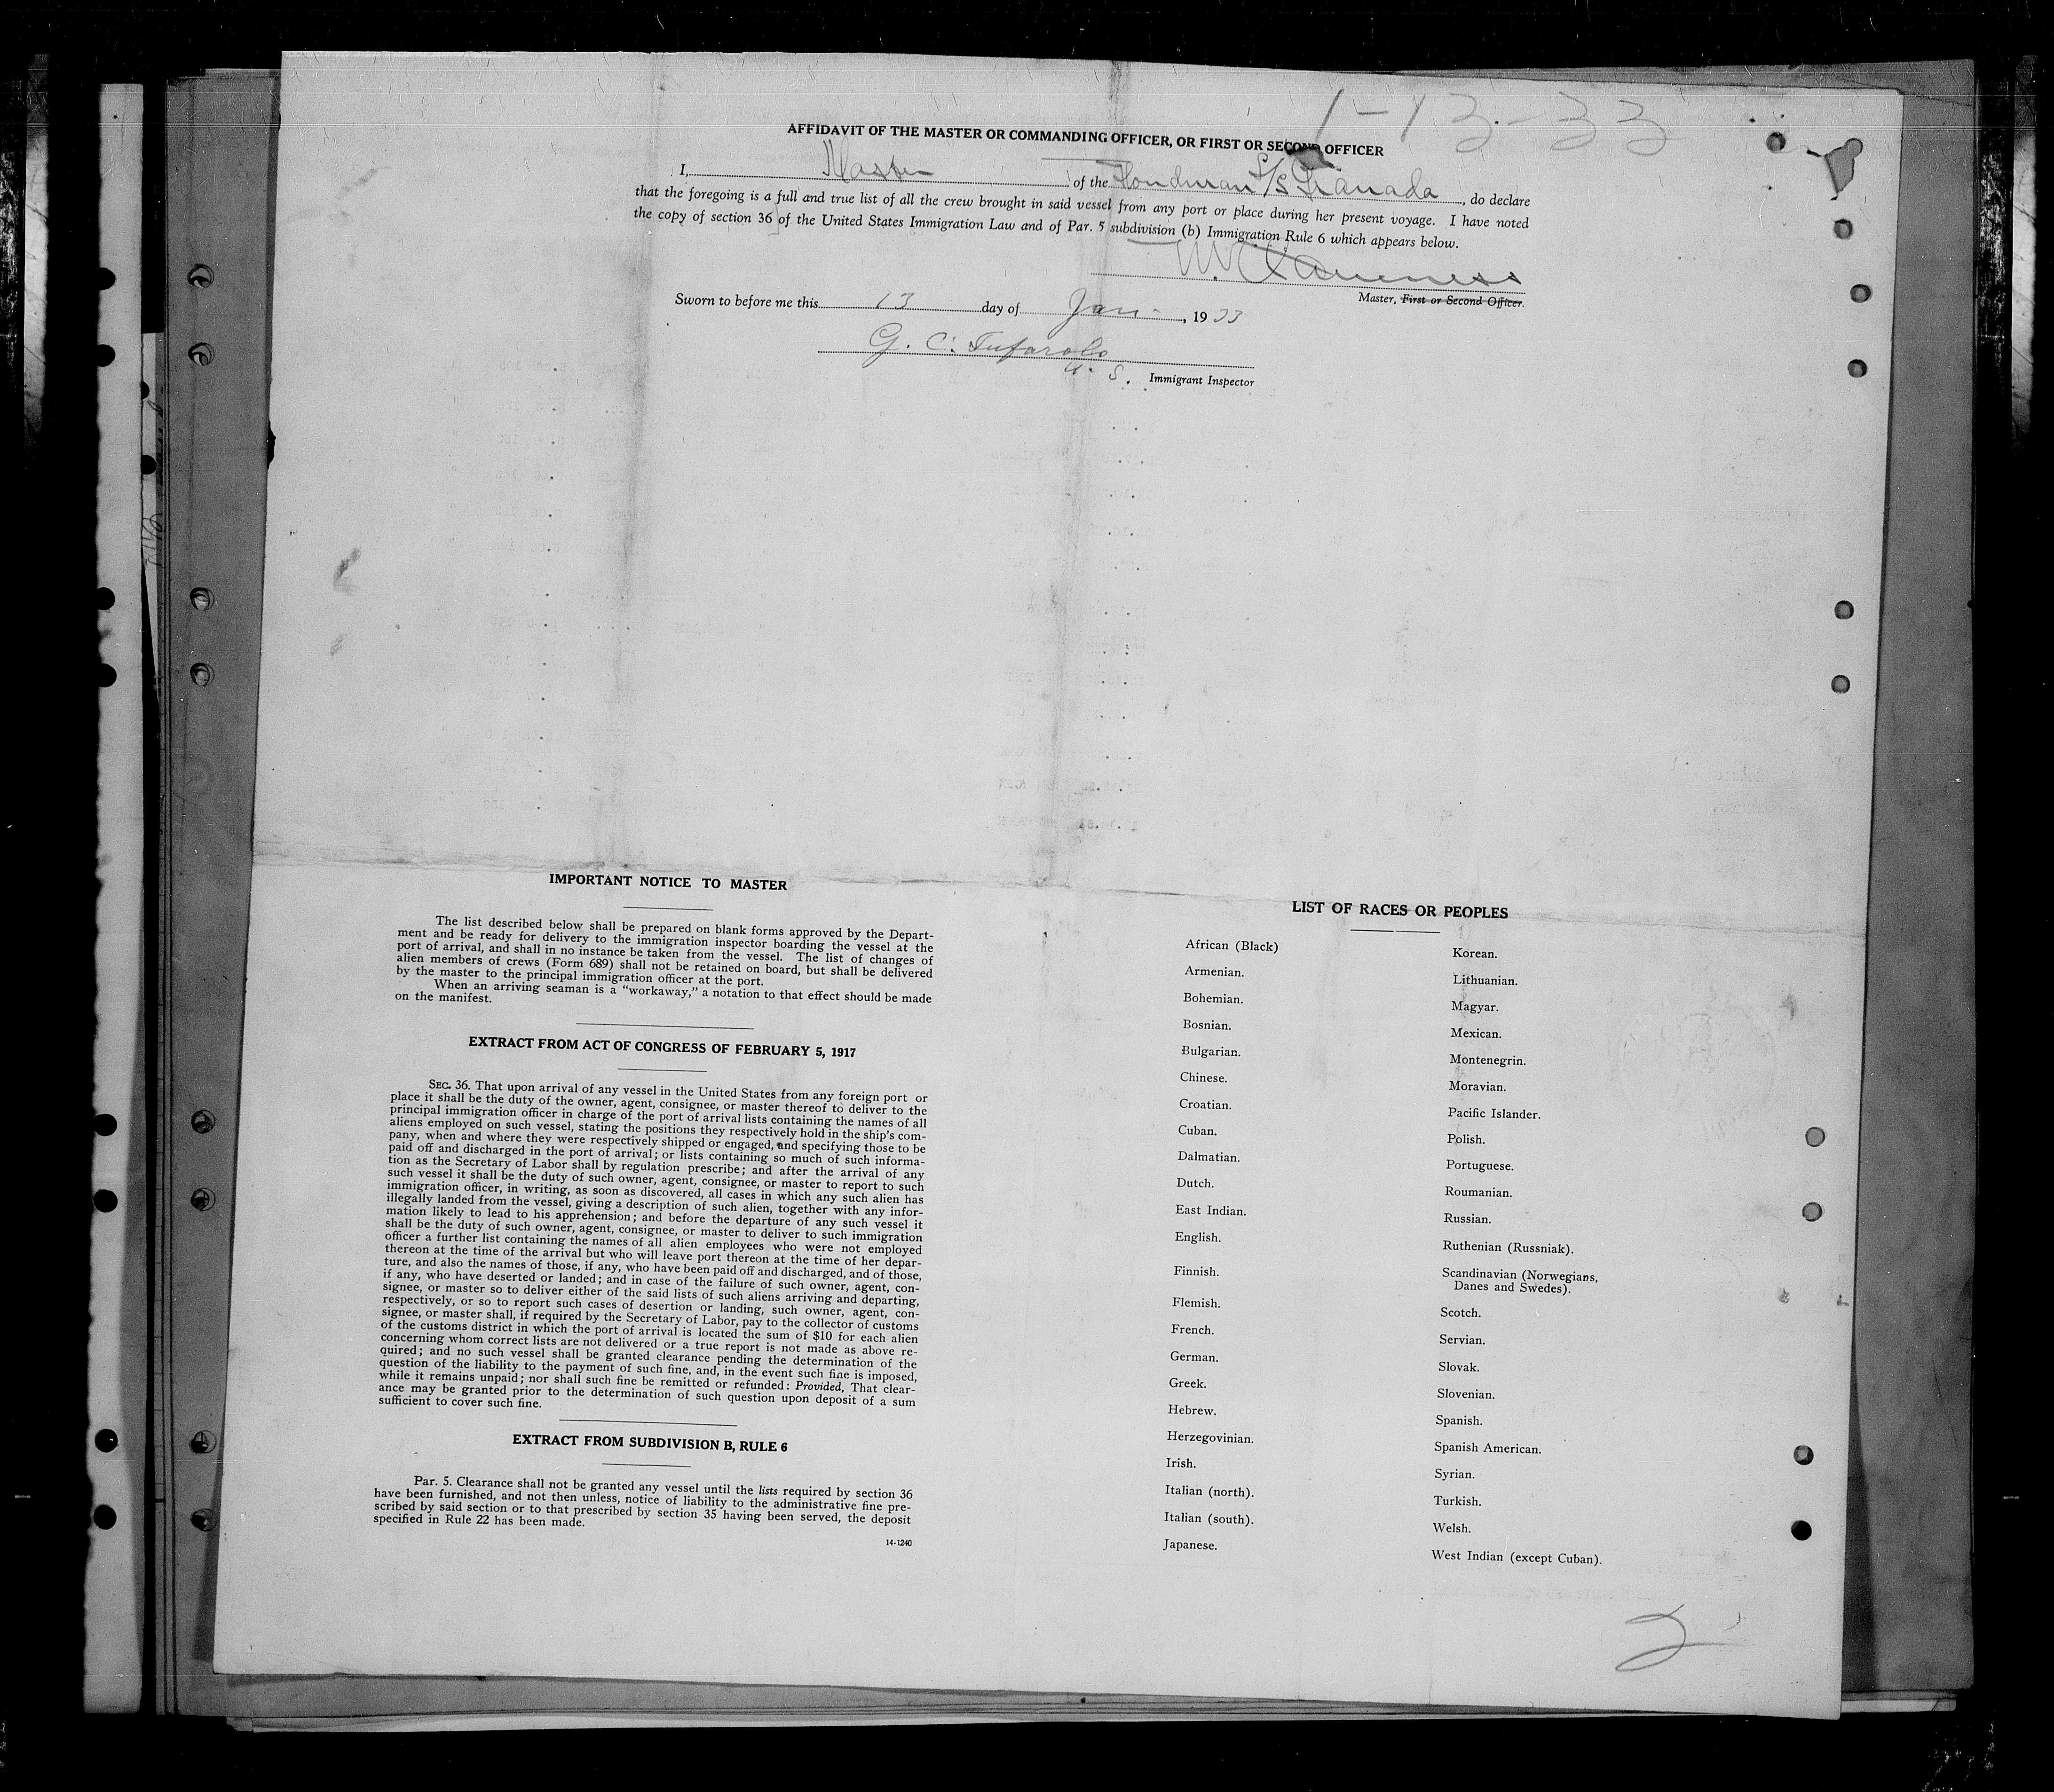 1-13-33
AFFIDAVIT OF THE MASTER OR COMMANDING OFFICER, OR FIRST OR SECOND OFFICER
I, Master of the Honduran S/S Granada, do declare
that the foregoing is a full and true list of all the crew brought in said vessel from any port or place during her present voyage. I have noted
the copy of section 36 of the United States Immigration Law and of Par. 5 subdivision (b) Immigration Rule 6 which appears below.
Master, First or Second Officer.
Sworn to before me this 13 day of Jan-, 1933
G. C.
U. S. Immigrant Inspector
IMPORTANT NOTICE TO MASTER
The list described below shall be prepared on blank forms approved by the Depart-
ment and be ready for delivery to the immigration inspector boarding the vessel at the
port of arrival, and shall in no instance be taken from the vessel. The list of changes of
alien members of crews (Form 689) shall not be retained on board, but shall be delivered
by the master to the principal immigration officer at the port.
When an arriving seaman is a "workaway," a notation to that effect should be made
on the manifest.
EXTRACT FROM ACT OF CONGRESS OF FEBRUARY 5, 1917
SEC. 36. That upon arrival of any vessel in the United States from any foreign port or
place it shall be the duty of the owner, agent, consignee, or master thereof to deliver to the
principal immigration officer in charge of the port of arrival lists containing the names of all
aliens employed on such vessel, stating the positions they respectively hold in the ship's com-
pany, when and where they were respectively shipped or engaged, and specifying those to be
paid off and discharged in the port of arrival; or lists containing so much of such informa-
tion as the Secretary of Labor shall by regulation prescribe; and after the arrival of any
such vessel it shall be the duty of such owner, agent, consignee, or master to report to such
immigration officer, in writing, as soon as discovered, all cases in which any such alien has
illegally landed from the vessel, giving a description of such alien, together with any infor-
mation likely to lead to his apprehension; and before the departure of any such vessel it
shall be the duty of such owner, agent, consignee, or master to deliver to such immigration
officer a further list containing the names of all alien employees who were not employed
thereon at the time of the arrival but who will leave port thereon at the time of her depar-
ture, and also the names of those, if any, who have been paid off and discharged, and of those,
if any, who have deserted or landed; and in case of the failure of such owner, agent, con-
signee, or master so to deliver either of the said lists of such aliens arriving and departing,
respectively, or so to report such cases of desertion or landing, such owner, agent, con-
signee, or master shall, if required by the Secretary of Labor, pay to the collector of customs
of the customs district in which the port of arrival is located the sum of $10 for each alien
concerning whom correct lists are not delivered or a true report is not made as above re-
quired; and no such vessel shall be granted clearance pending the determination of the
question of the liability to the payment of such fine, and, in the event such fine is imposed,
while it remains unpaid; nor shall such fine be remitted or refunded: Provided, That clear-
ance may be granted prior to the determination of such question upon deposit of a sum
sufficient to cover such fine.
EXTRACT FROM SUBDIVISION B, RULE 6
Par. 5. Clearance shall not be granted any vessel until the lists required by section 36
have been furnished, and not then unless, notice of liability to the administrative fine pre-
scribed by said section or to that prescribed by section 35 having been served, the deposit
specified in Rule 22 has been made.
14-1240
LIST OF RACES OR PEOPLES
African (Black)
Armenian.
Bohemian.
Bosnian.
Bulgarian.
Chinese.
Croatian.
Cuban.
Dalmatian.
Dutch.
East Indian.
English.
Finnish.
Flemish.
French.
German.
Greek.
Hebrew.
Herzegovinian.
Irish.
Italian (north).
Italian (south).
Japanese.
Korean.
Lithuanian.
Magyar.
Mexican.
Montenegrin.
Moravian.
Pacific Islander.
Polish.
Portuguese.
Roumanian.
Russian.
Ruthenian (Russniak).
Scandinavian (Norwegians,
Danes and Swedes).
Scotch.
Servian.
Slovak.
Slovenian.
Spanish.
Spanish American.
Syrian.
Turkish.
Welsh.
West Indian (except Cuban).
2